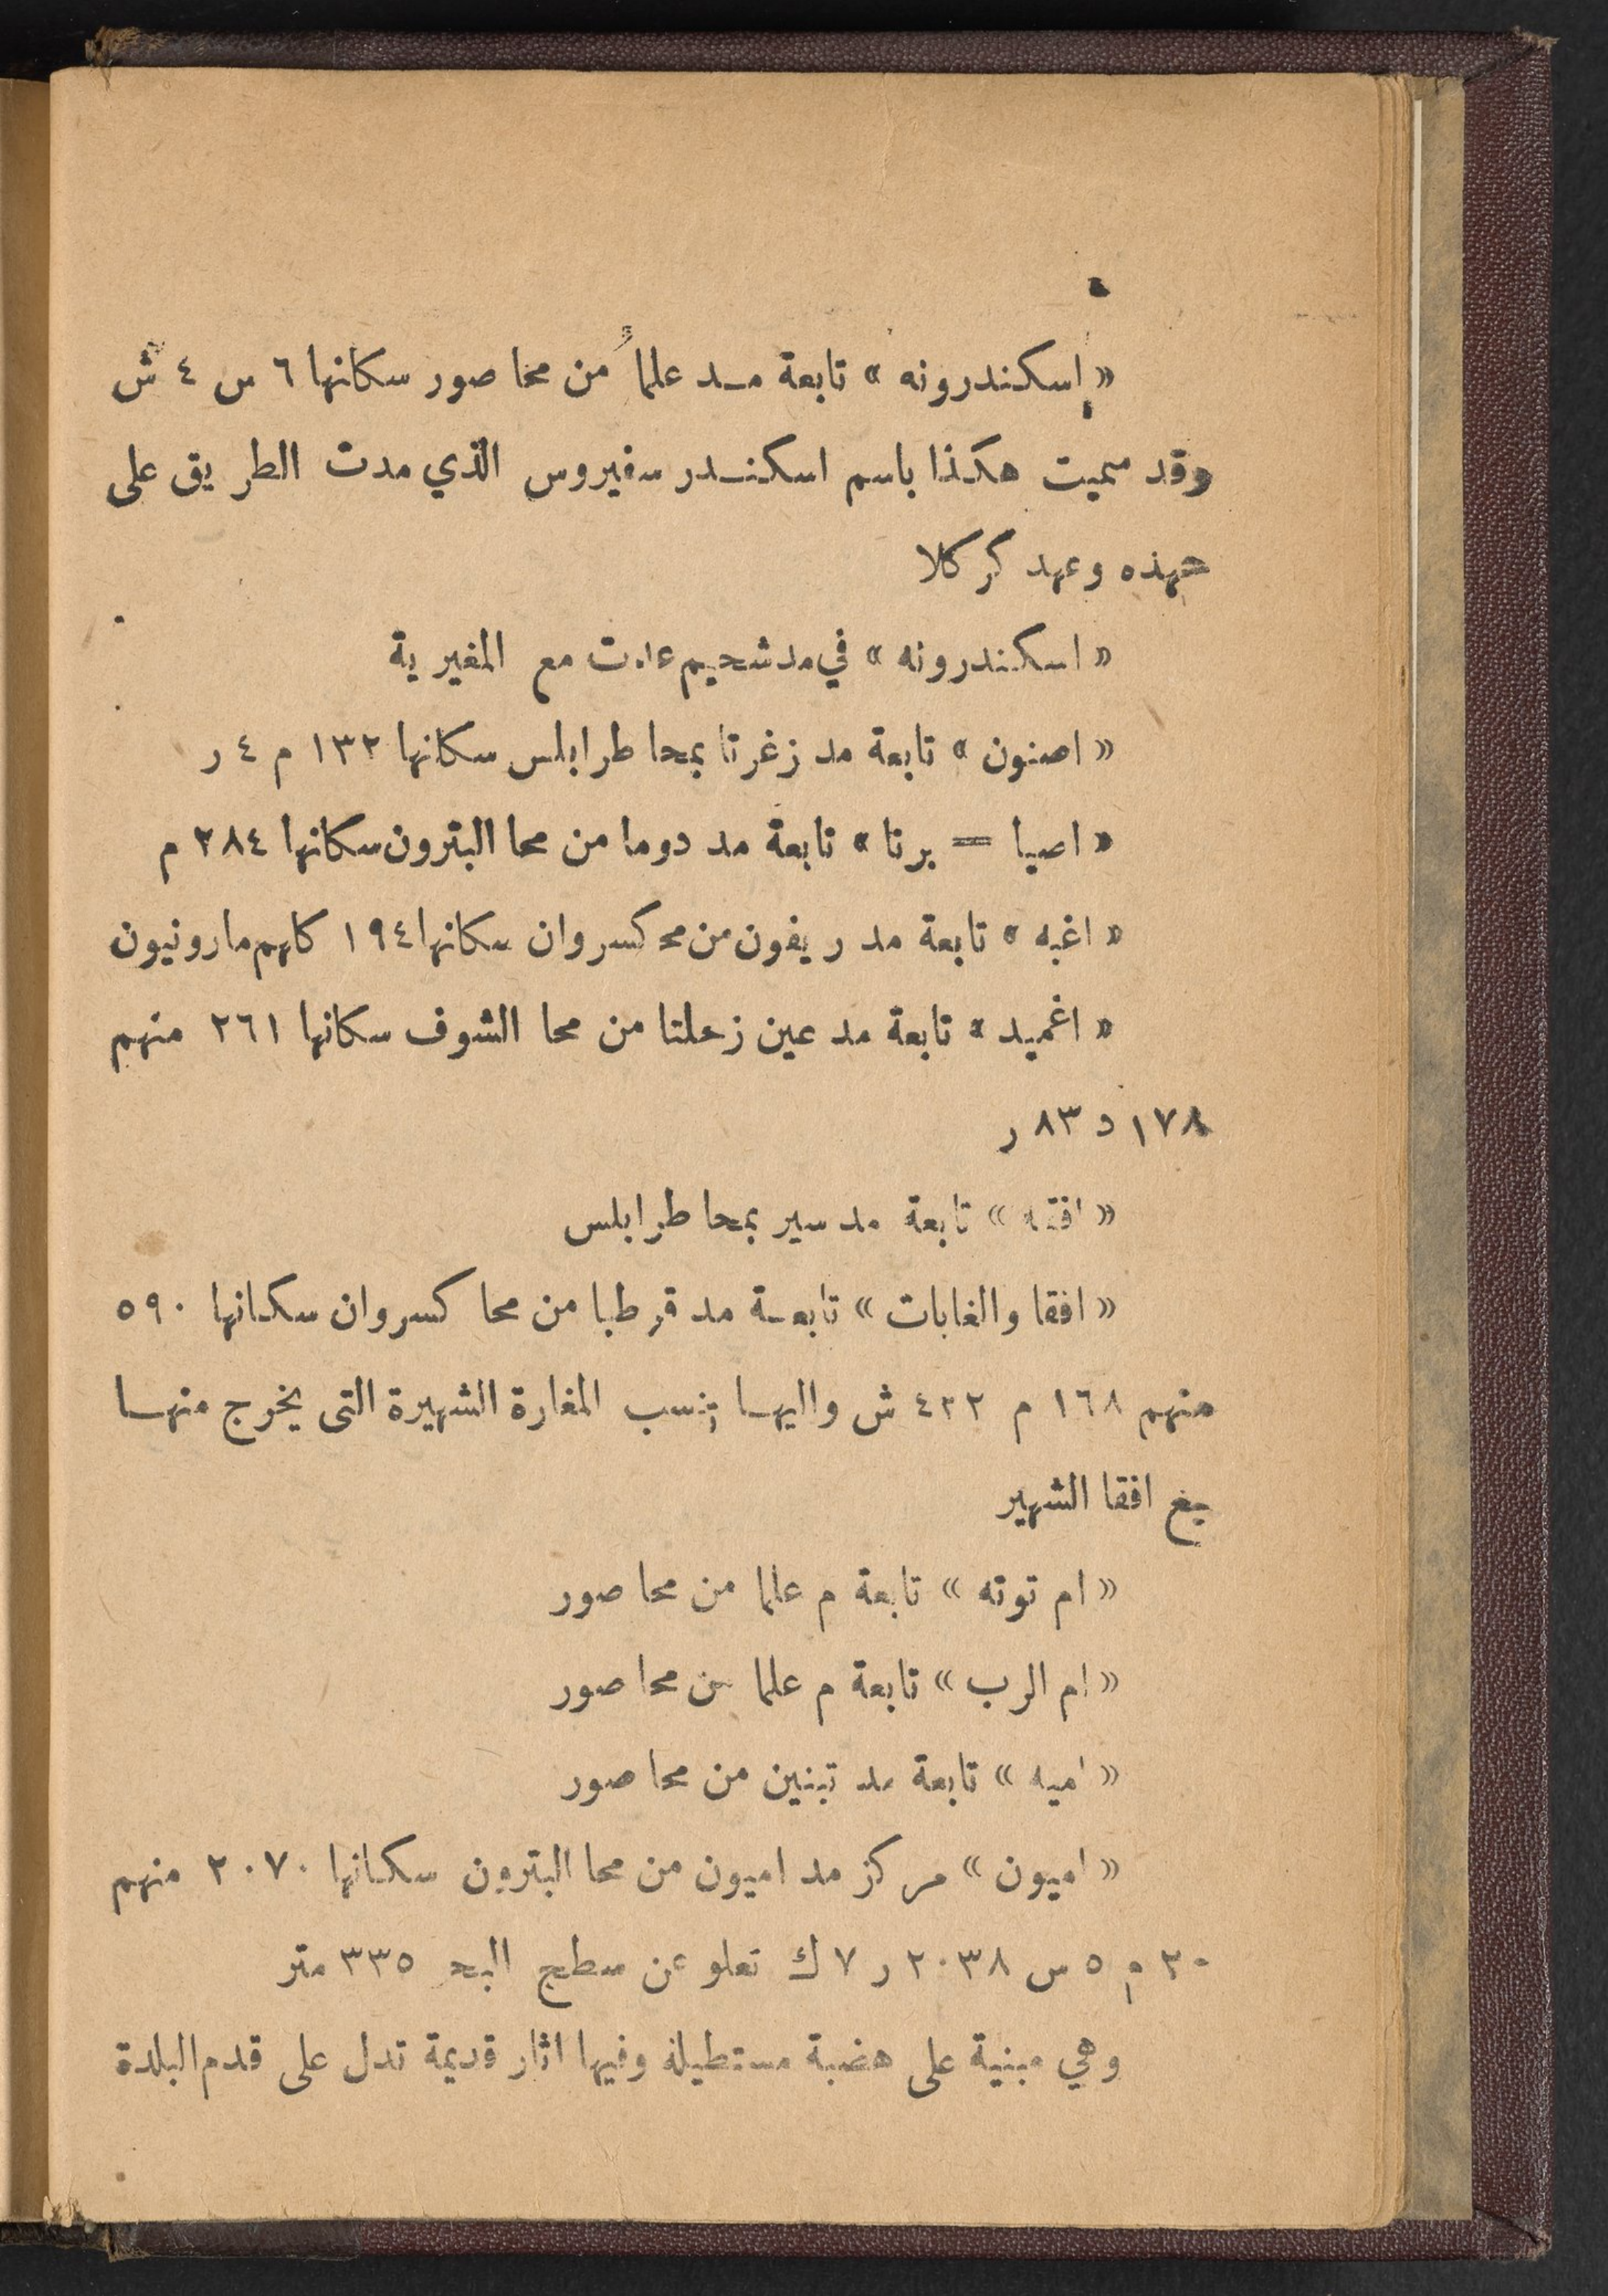 « اسكندرونه » تابعة مد علما من محا صور سكانها ٦ س ٤ ش
وقد سميت هكذا باسم اسكندر سفيروس الذي مدت الطريق على
عهده وعهد كركلا
« اسكندرونه » في مد شحيم عدت مع المغيرية
« اصنون » تابعة مد زغرتا بمحا طرابلس سكانها ١٣٢ م ٤ ر
« اصيا = برتا » تابعة مد دوما من محا البترون سكانها ٢٨٤ م
« اغبه » تابعة مد ريفون من محـ كسروان سكانها ١٩٤ كلهم مارونيون
« اغميد » تابعة مد عين زحلتا من محا الشوف سكانها ٢٦١ منهم
١٧٨ د ٨٣ ر
« افقه » تابعة مد سير بمحا طرابلس
« افقا والغابات » تابعة مد قرطبا من محا كسروان سكانها ٥٩٠
منهم ١٦٨ م ٤٢٢ ش واليها تنسب المغارة الشهيرة التى يخرج منها
افقا الشهير
« ام توته » تابعة م علما من محا صور
« ام الرب » تابعة م علما من محا صور
« اميه » تابعة مد تبنين من محا صور
« اميون » مركز مد اميون من محا البترون سكانها ٢٠٧٠ منهم
٢٠ م ٥ س ٢٠٣٨ ر ٧ ك تعلو عن سطح البحر ٣٣٥ متر
وهي مبنية على هضبة مستطيلة وفيها اثار قديمة تدل على قدم البلدة